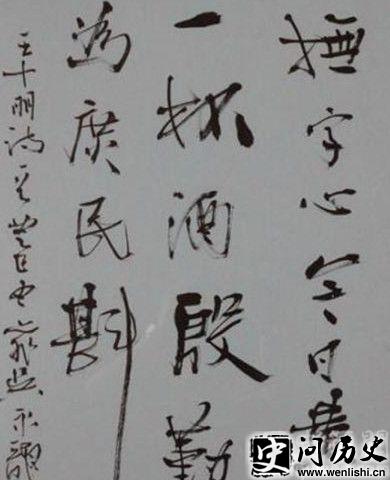 撫字心今日黄
一杯酒殷勤
為庶民斟
王十朋詩一首
史 问历史
www.wenlishi.cn